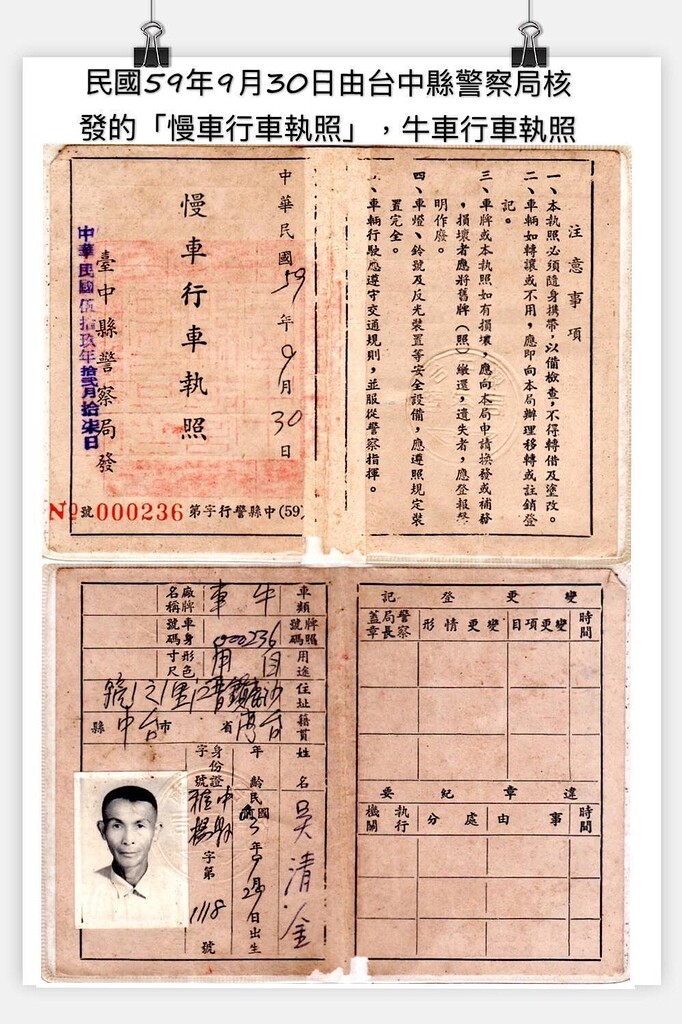 民國59年9月30日由台中縣警察局核
發的「慢車行車執照」，牛車行車執照
注意事項
一、本執照必須隨身攜帶，以備檢查，不得轉借及塗改。
二、車輛如轉讓或不用，應即向本局辦理移轉或註銷登
記。
三、車牌或本執照如有損壞，應向本局申請換發或補發
，損壞者應將舊牌（照）繳還，遺失者，應登報聲
明作廢。
四、車燈、鈴號及反光裝置等安全設備，應遵照規定裝
置完全。
、車輛行駛應遵守交通規則，並服從警察指揮。
中華民國59年9月30日
慢車行車執照
臺中縣警察局發
中華民國伍拾玖年拾貳月拾柒日
(59)中縣警行字第000236號
No
車類 牛車
廠牌名稱
牌照號碼 000236
車身號碼
用途 自用
形色尺寸
住址
籍貫 台灣省 台中縣市
姓名 吳清金
年齡 民國 年9月 日出生
身份證字號 字第1118號
變更登記
時間
變更項目
變更情形
警察局長蓋章
違章紀要
時間
事由
處分
執行機關